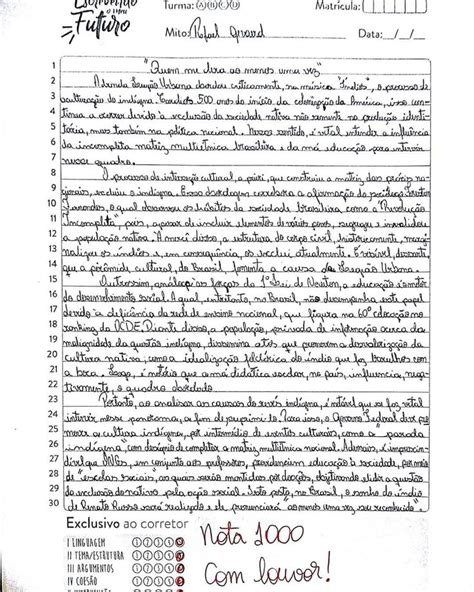 Escrevendo o meu
Futuro
Turma: A B C D
Matrícula:
Mito: Rafael Girard
Data: / /
1 "Quem me dera ao menos uma vez"
2 A banda Legião Urbana abordou criticamente, na música "Índios", o processo de
3 aculturação do indígena. 500 anos do início da colonização da América, isso con-
4 tinua a ocorrer devido à exclusão da sociedade nativa não somente na produção identi-
5 tária, mas também na política nacional. Nesse sentido, é vital entender a influência
6 da incompleta matriz multiétnica brasileira e da má educação para intervir
7 nesse quadro.
8 O processo de interação cultural, a priori, que construiu a matriz das
9 excluiu o indígena. Essa abordagem corrobora a afirmação do sociólogo Florestan
10 Fernandes, o qual descreveu os da sociedade brasileira como a "Revolução
11 Incompleta", pois, apesar de incluir elementos de vários povos, segrega e invalida
12 a população nativa. A mercê disso, a estrutura do corpo civil, historicamente, margi-
13 nalizou os índios e, em consequência, os exclui atualmente. É visível, desse
14 que a pirâmide cultural, do Brasil, fomenta a causa da Legião Urbana.
15 Outrossim, análoga às forças da 1ª Lei de Newton, a educação é o motor
16 do desenvolvimento social. A qual, entretanto, no Brasil, não desempenha este papel
17 devido à deficiência da rede de ensino nacional, que figura na 60ª colocação no
18 ranking da OCDE. Diante disso, a população, privada de informação acerca da
19 da questão indígena, dissemina atos que promovem a desvalorização da
20 cultura nativa, como a idealização folclórica do índio que faz barulhos com
21 a boca. Logo, é notório que a má didática escolar, no país, influencia, nega-
22 tivamente, o quadro abordado.
23 Portanto, ao analisar as causas do revés indígena, é notável que se faz vital
24 intervir nesse panorama, a fim de suprimi-lo. Para isso, o Governo Federal deve pro-
25 mover a cultura indígena, por intermédio de eventos culturais, como a parada
26 indígena", com desígnio de completar a matriz multiétnica nacional. Ademais, é imprescin-
27 dível que ONGs, em conjunto aos professores, providenciem educação à sociedade, por meio
28 de "escolas sociais, as quais serão mantidas por doações, objetivando elidir a questão
29 da exclusão do nativo pela ação social. Isto posto, no Brasil, o sonho do índio
30 de Renato Russo será realizado e ele pronunciará ao menos uma vez, seu reconhecido".
Exclusivo ao corretor
I LINGUAGEM
II TEMA/ESTRUTURA
III ARGUMENTOS
IV COESÃO
Nota 1000
Com louvor!